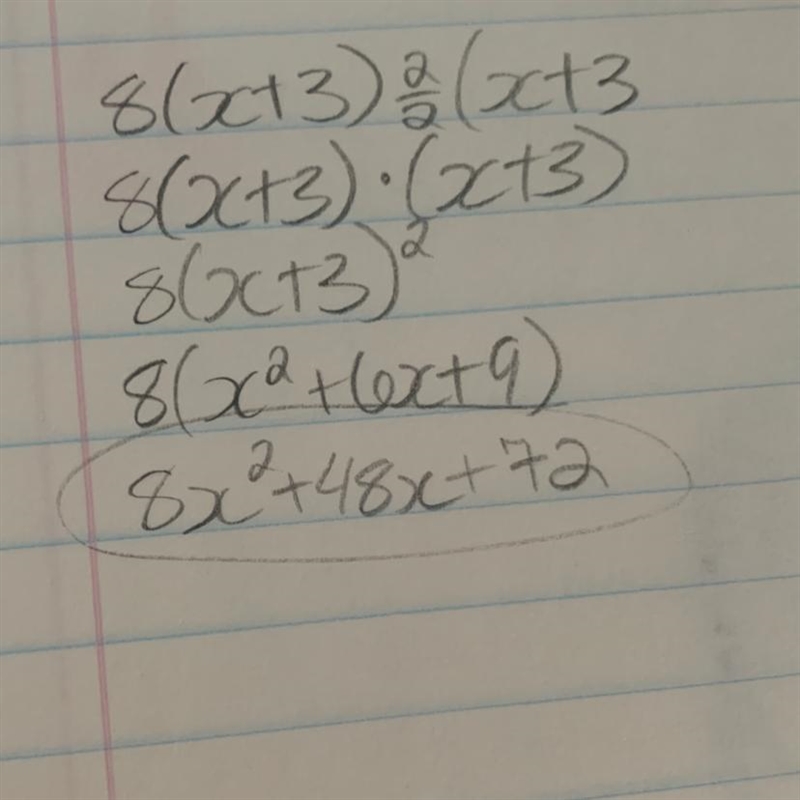 8(x+3) 2/2 (x+3
8(x+3)·(x+3)
8(x+3)²
8(x²+6x+9)
8x²+48x+72